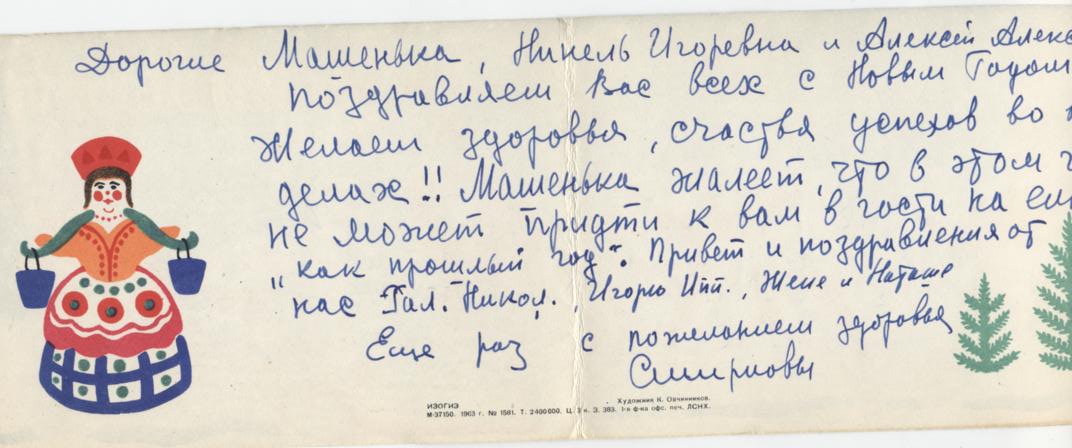 Дорогие Машенька, Нинель Игоревна и Алексей Алекс
поздравляем Вас всех с Новым Годом
Желаем здоровья, счастья успехов во
делах!! Машенька жалеет, что в этом
не может придти к вам в гости на ел
„как прошлый год". Привет и поздравления от
нас Гал. Никол., Игорю Ипп., Жене и Наташе
Еще раз с пожеланием здоровья
Смирновы
Художник К. Овчинников.
ИЗОГИЗ
М-37150. 1963 г. № 1581. Т. 2400000. Ц. 3 к. З. 383. 1-я ф-ка офс. печ. ЛСНХ.